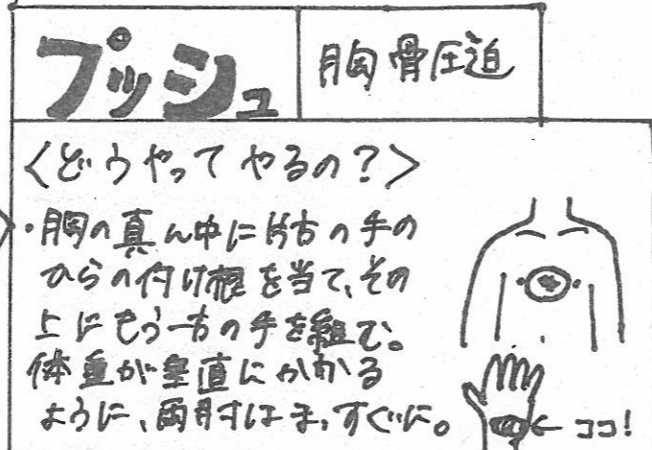 プッシュ
胸骨圧迫
<どうやってやるの?>
・胸の真ん中に片方の手の
ひらの付け根を当て、その
上にもう一方の手を組む。
体重が垂直にかかる
ように、両肘はまっすぐに。
ココ!